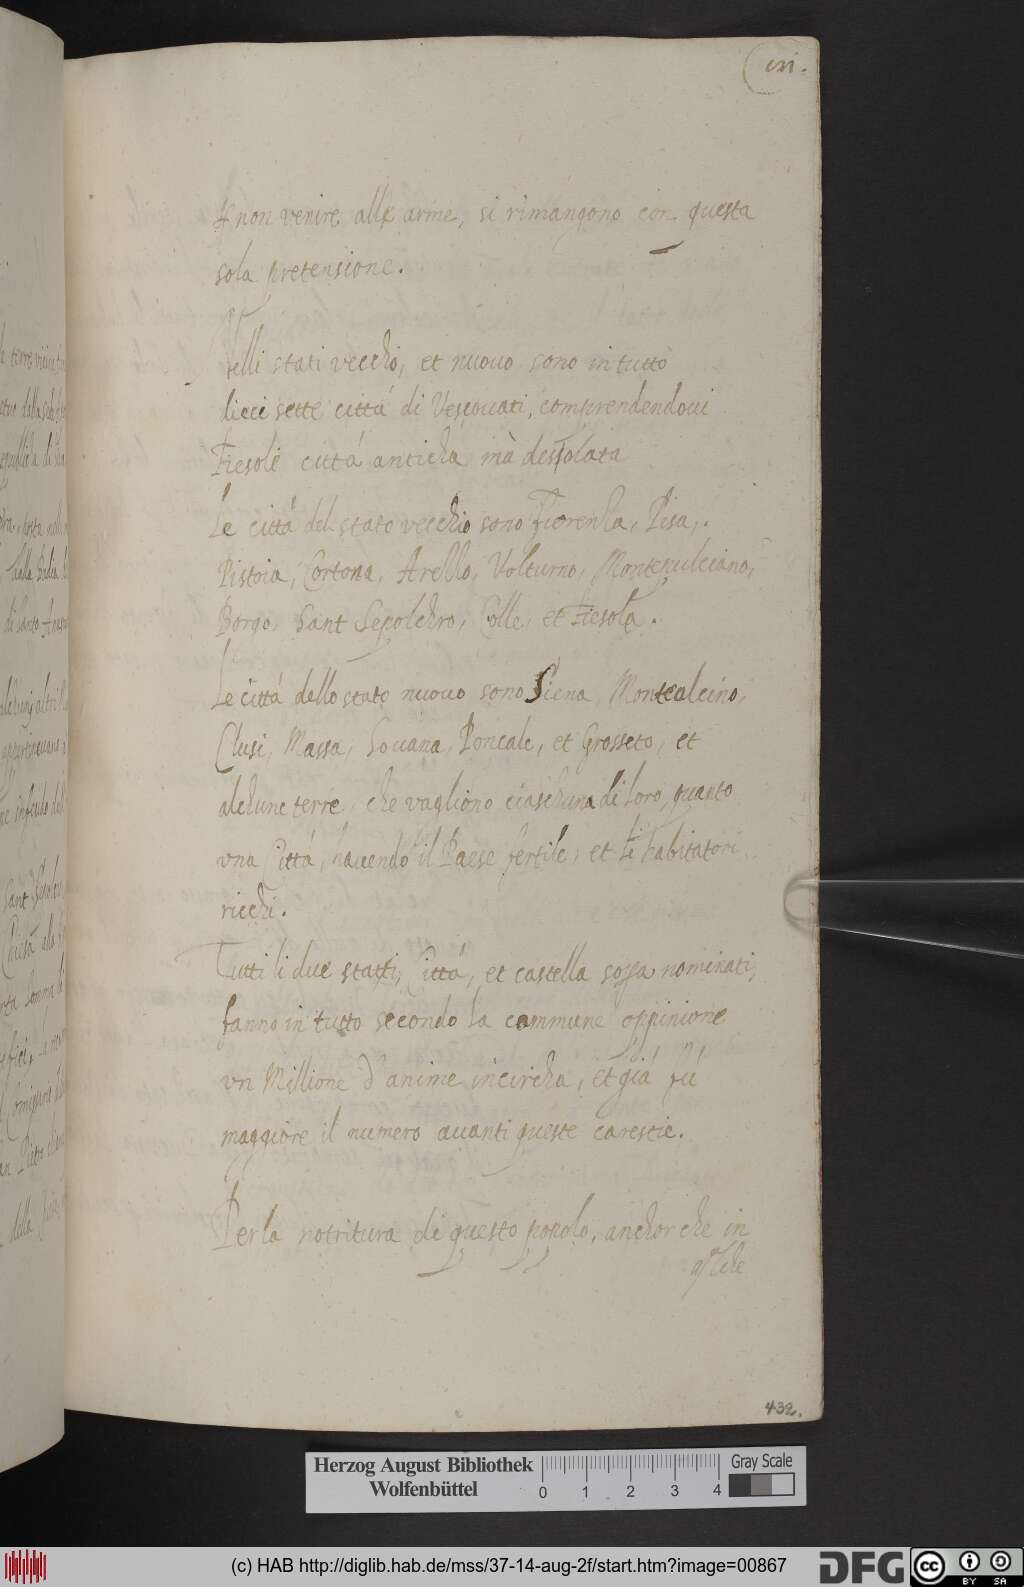 non venire alle arme, si rimangono con questa
sola pretensione.
Nelli stati vecchio, et nuouo sono in tutto
dieci sette cittá di Vescouati, comprendendoui
Fiesole cittá anticha mà dessolata
Le cittá del stato vecchio sono Fiorenza, Pisa,
Pistoia, Cortona, Arezzo, Volturno, Montepulciano,
Borgo, Sant Sepolchro, Colle, et Fiesola.
Le cittá dello stato nuouo sono Siena, Montealcino,
Clusi, Massa, Souana, Poncale, et Grosseto, et
alchune terre, che vagliono ciaschuna di loro, quanto
vna Cittá, hauendo il Paese fertile, et li habitatori
ricchi.
Tutti li due stati, Cittá, et castella sopra nominati,
fanno in tutto secondo la commune oppinione
vn Millione d'anime incircha, et giá fú
maggiore il numero auanti queste carestie.
Per la notritura di questo popolo, anchor che in
432.
Herzog August Bibliothek
Wolfenbüttel
0 1 2 3 4
Gray Scale
(c) HAB http://diglib.hab.de/mss/37-14-aug-2f/start.htm?image=00867
DFG
cc BY SA